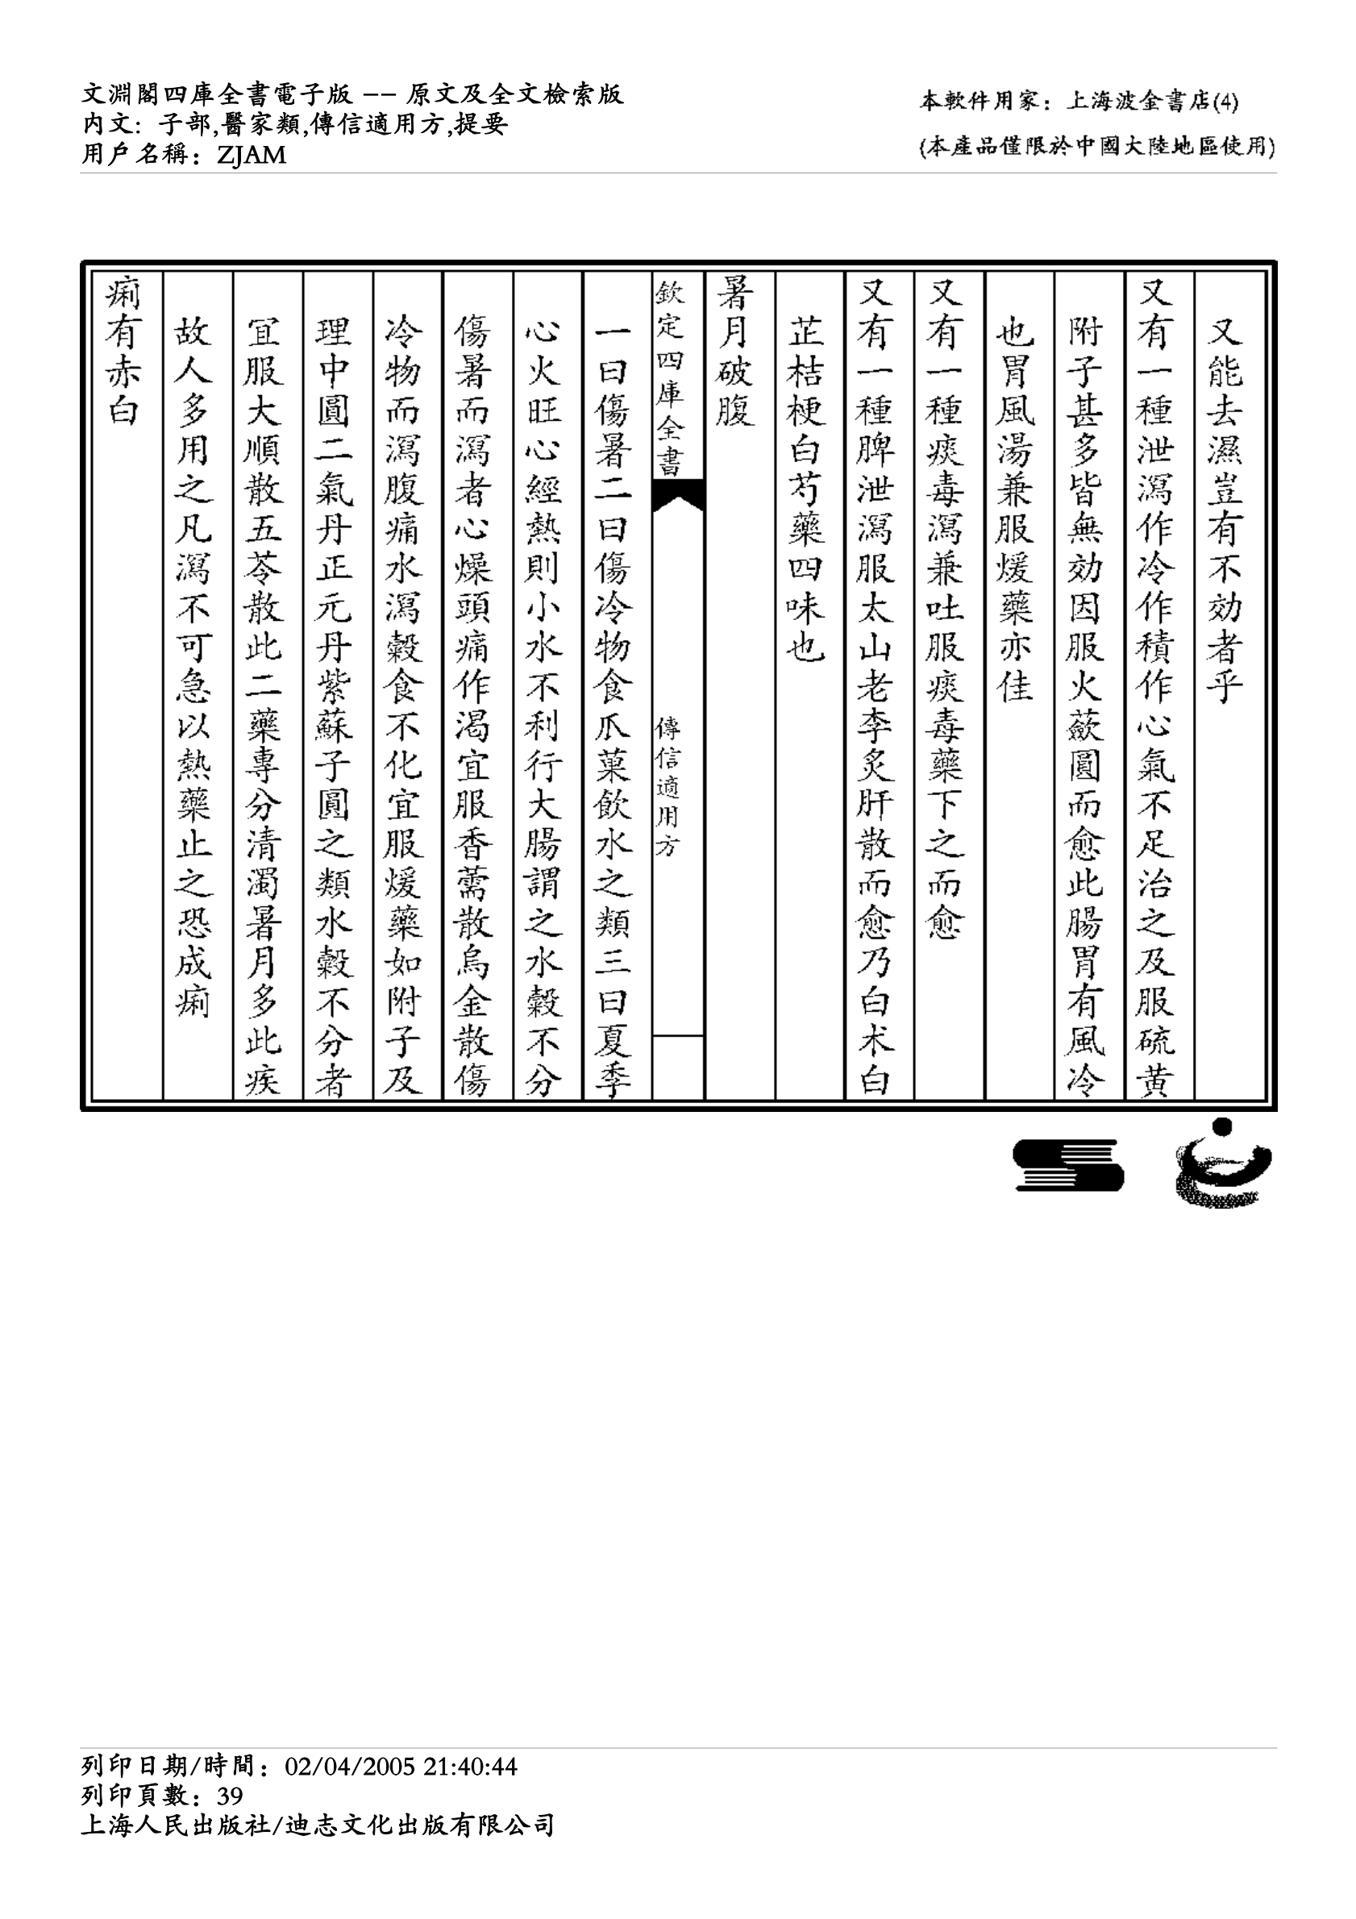 文淵閣四庫全書電子版 -- 原文及全文檢索版
內文: 子部,醫家類,傳信適用方,提要
用戶名稱: ZJAM
本軟件用家: 上海波金書店(4)
(本產品僅限於中國大陸地區使用)
又能去濕豈有不効者乎
又有一種泄瀉作冷作積作心氣不足治之及服硫黃
附子甚多皆無効因服火蘞圓而愈此腸胃有風冷
也胃風湯兼服煖藥亦佳
又有一種痰毒瀉兼吐服痰毒藥下之而愈
又有一種脾泄瀉服太山老李炙肝散而愈乃白术白
芷桔梗白芍藥四味也
暑月破腹
欽定四庫全書
傳信適用方
一曰傷暑二曰傷冷物食瓜菓飲水之類三曰夏季
心火旺心經熱則小水不利行大腸謂之水糓不分
傷暑而瀉者心燥頭痛作渴宜服香薷散烏金散傷
冷物而瀉腹痛水瀉糓食不化宜服煖藥如附子及
理中圓二氣丹正元丹紫蘇子圓之類水糓不分者
宜服大順散五苓散此二藥專分清濁暑月多此疾
故人多用之凡瀉不可急以熱藥止之恐成痢
痢有赤白
列印日期/時間: 02/04/2005 21:40:44
列印頁數: 39
上海人民出版社/迪志文化出版有限公司